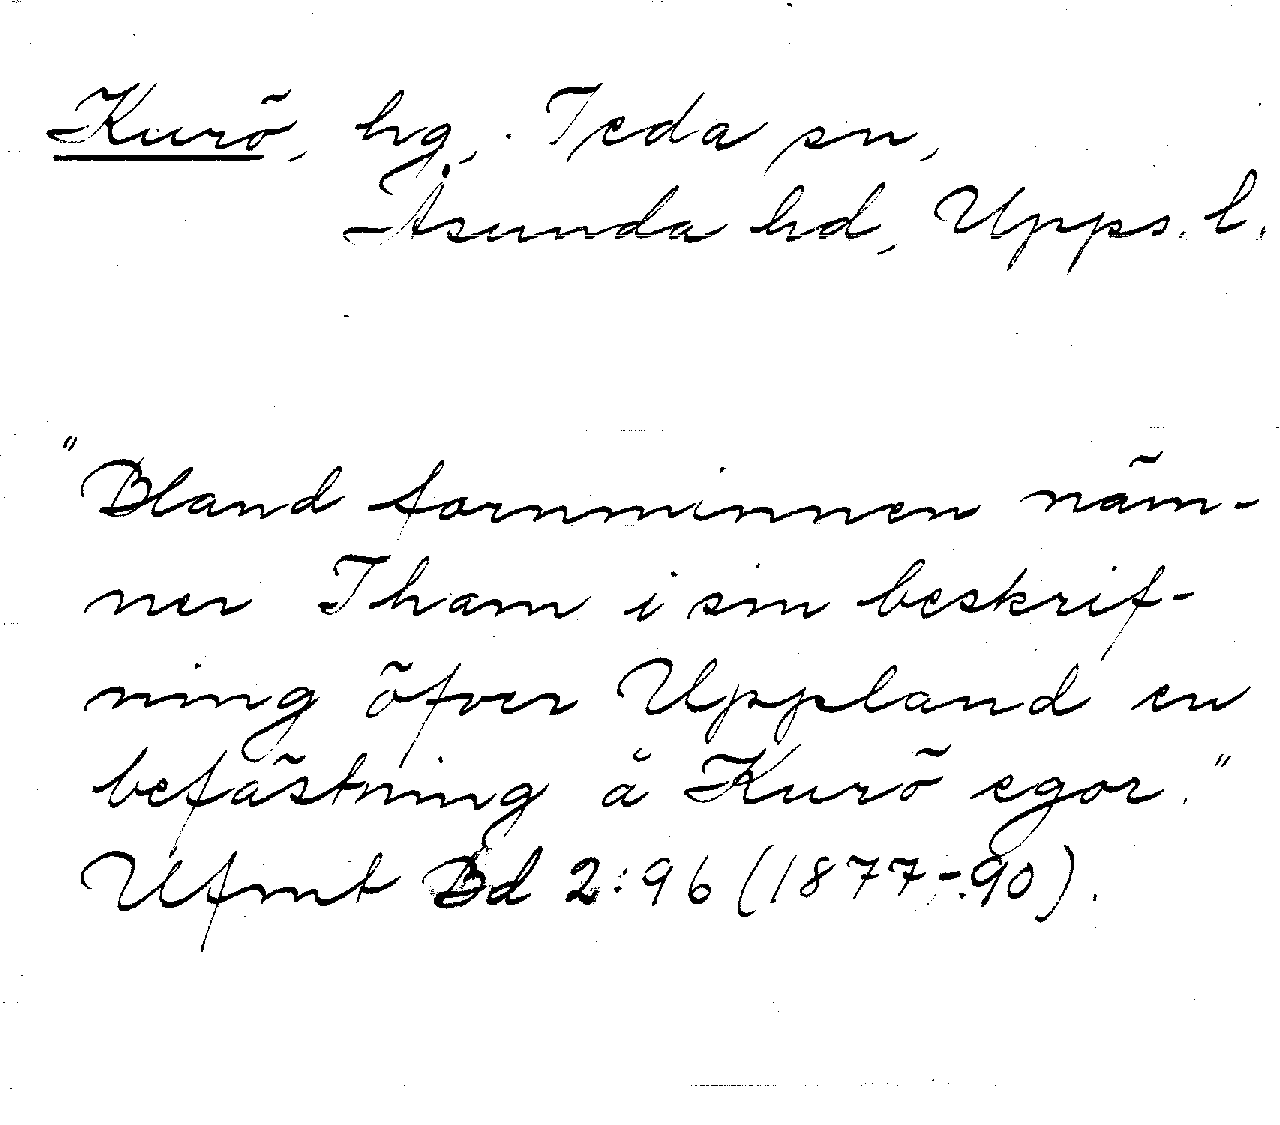 Kurö, hg, Teda sn,
Åsunda hd, Upps. l.
"Bland fornminnen näm-
ner Tham i sin beskrif-
ning öfver Uppland en
befästning å Kurö egor."
Ufmt Bd 2:96 (1877-90).